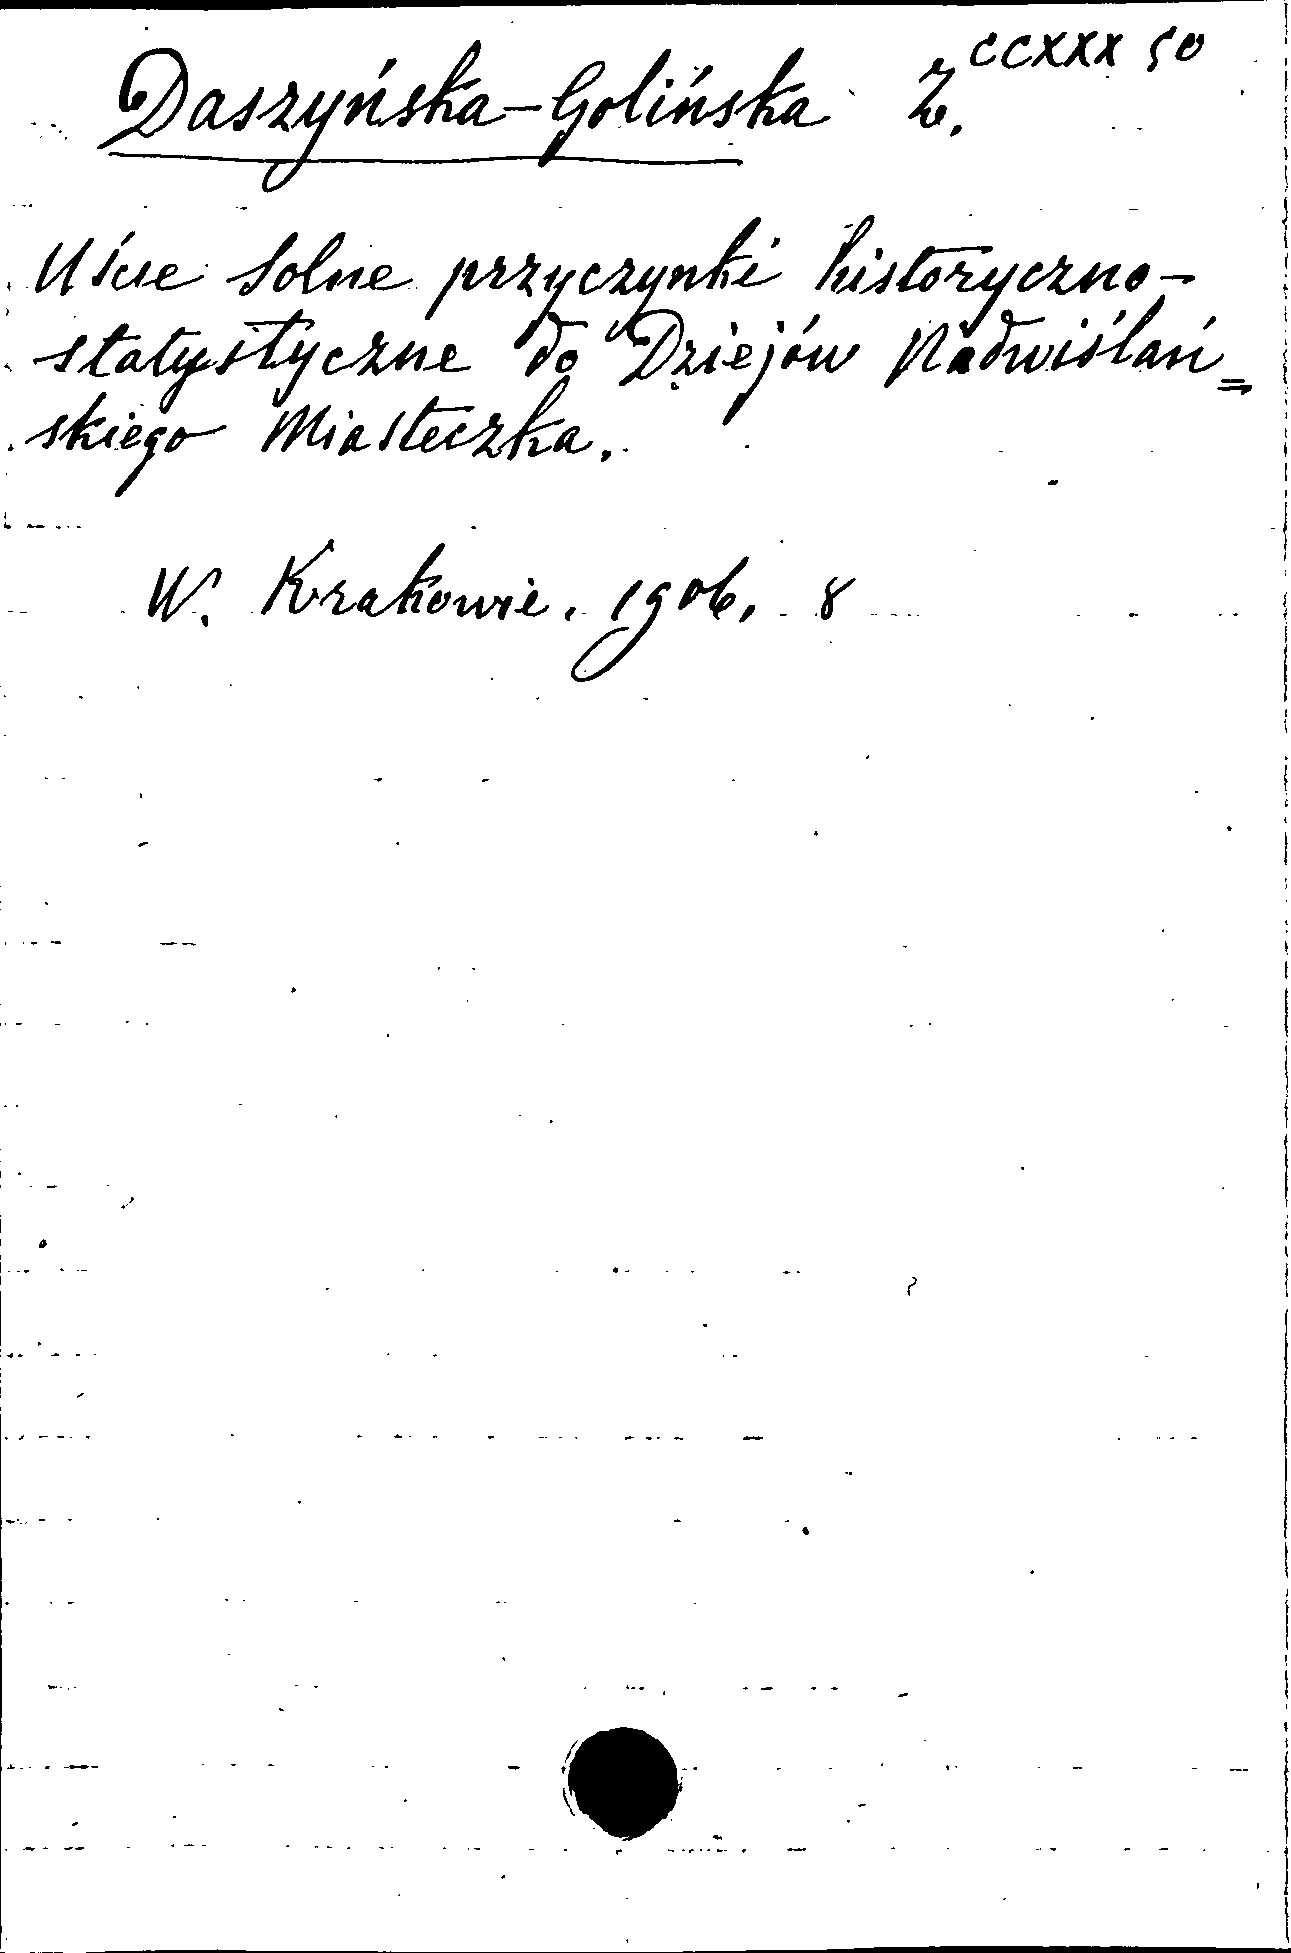 CCXXX 50
Daszyńska-Golińska Z.
Uście Solne przyczynki historyczno-
statystyczne do Dziejów Nadwiślań=
skiego Miasteczka.
W. Krakowie. 1906. 8